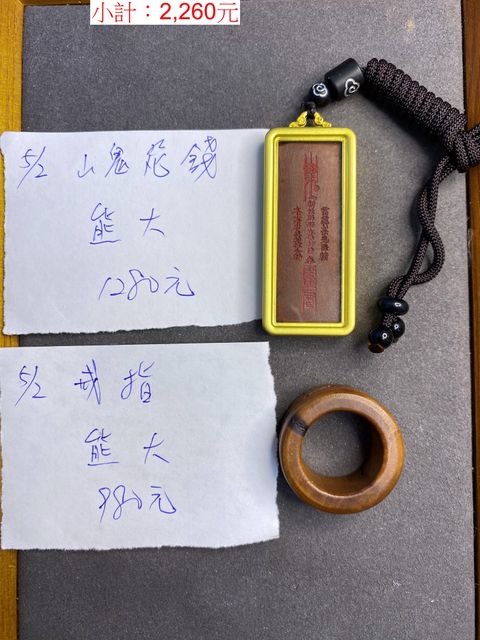 小計：2,260元
5/2 山鬼花錢
熊大
1280元
5/2 戒指
熊大
980元